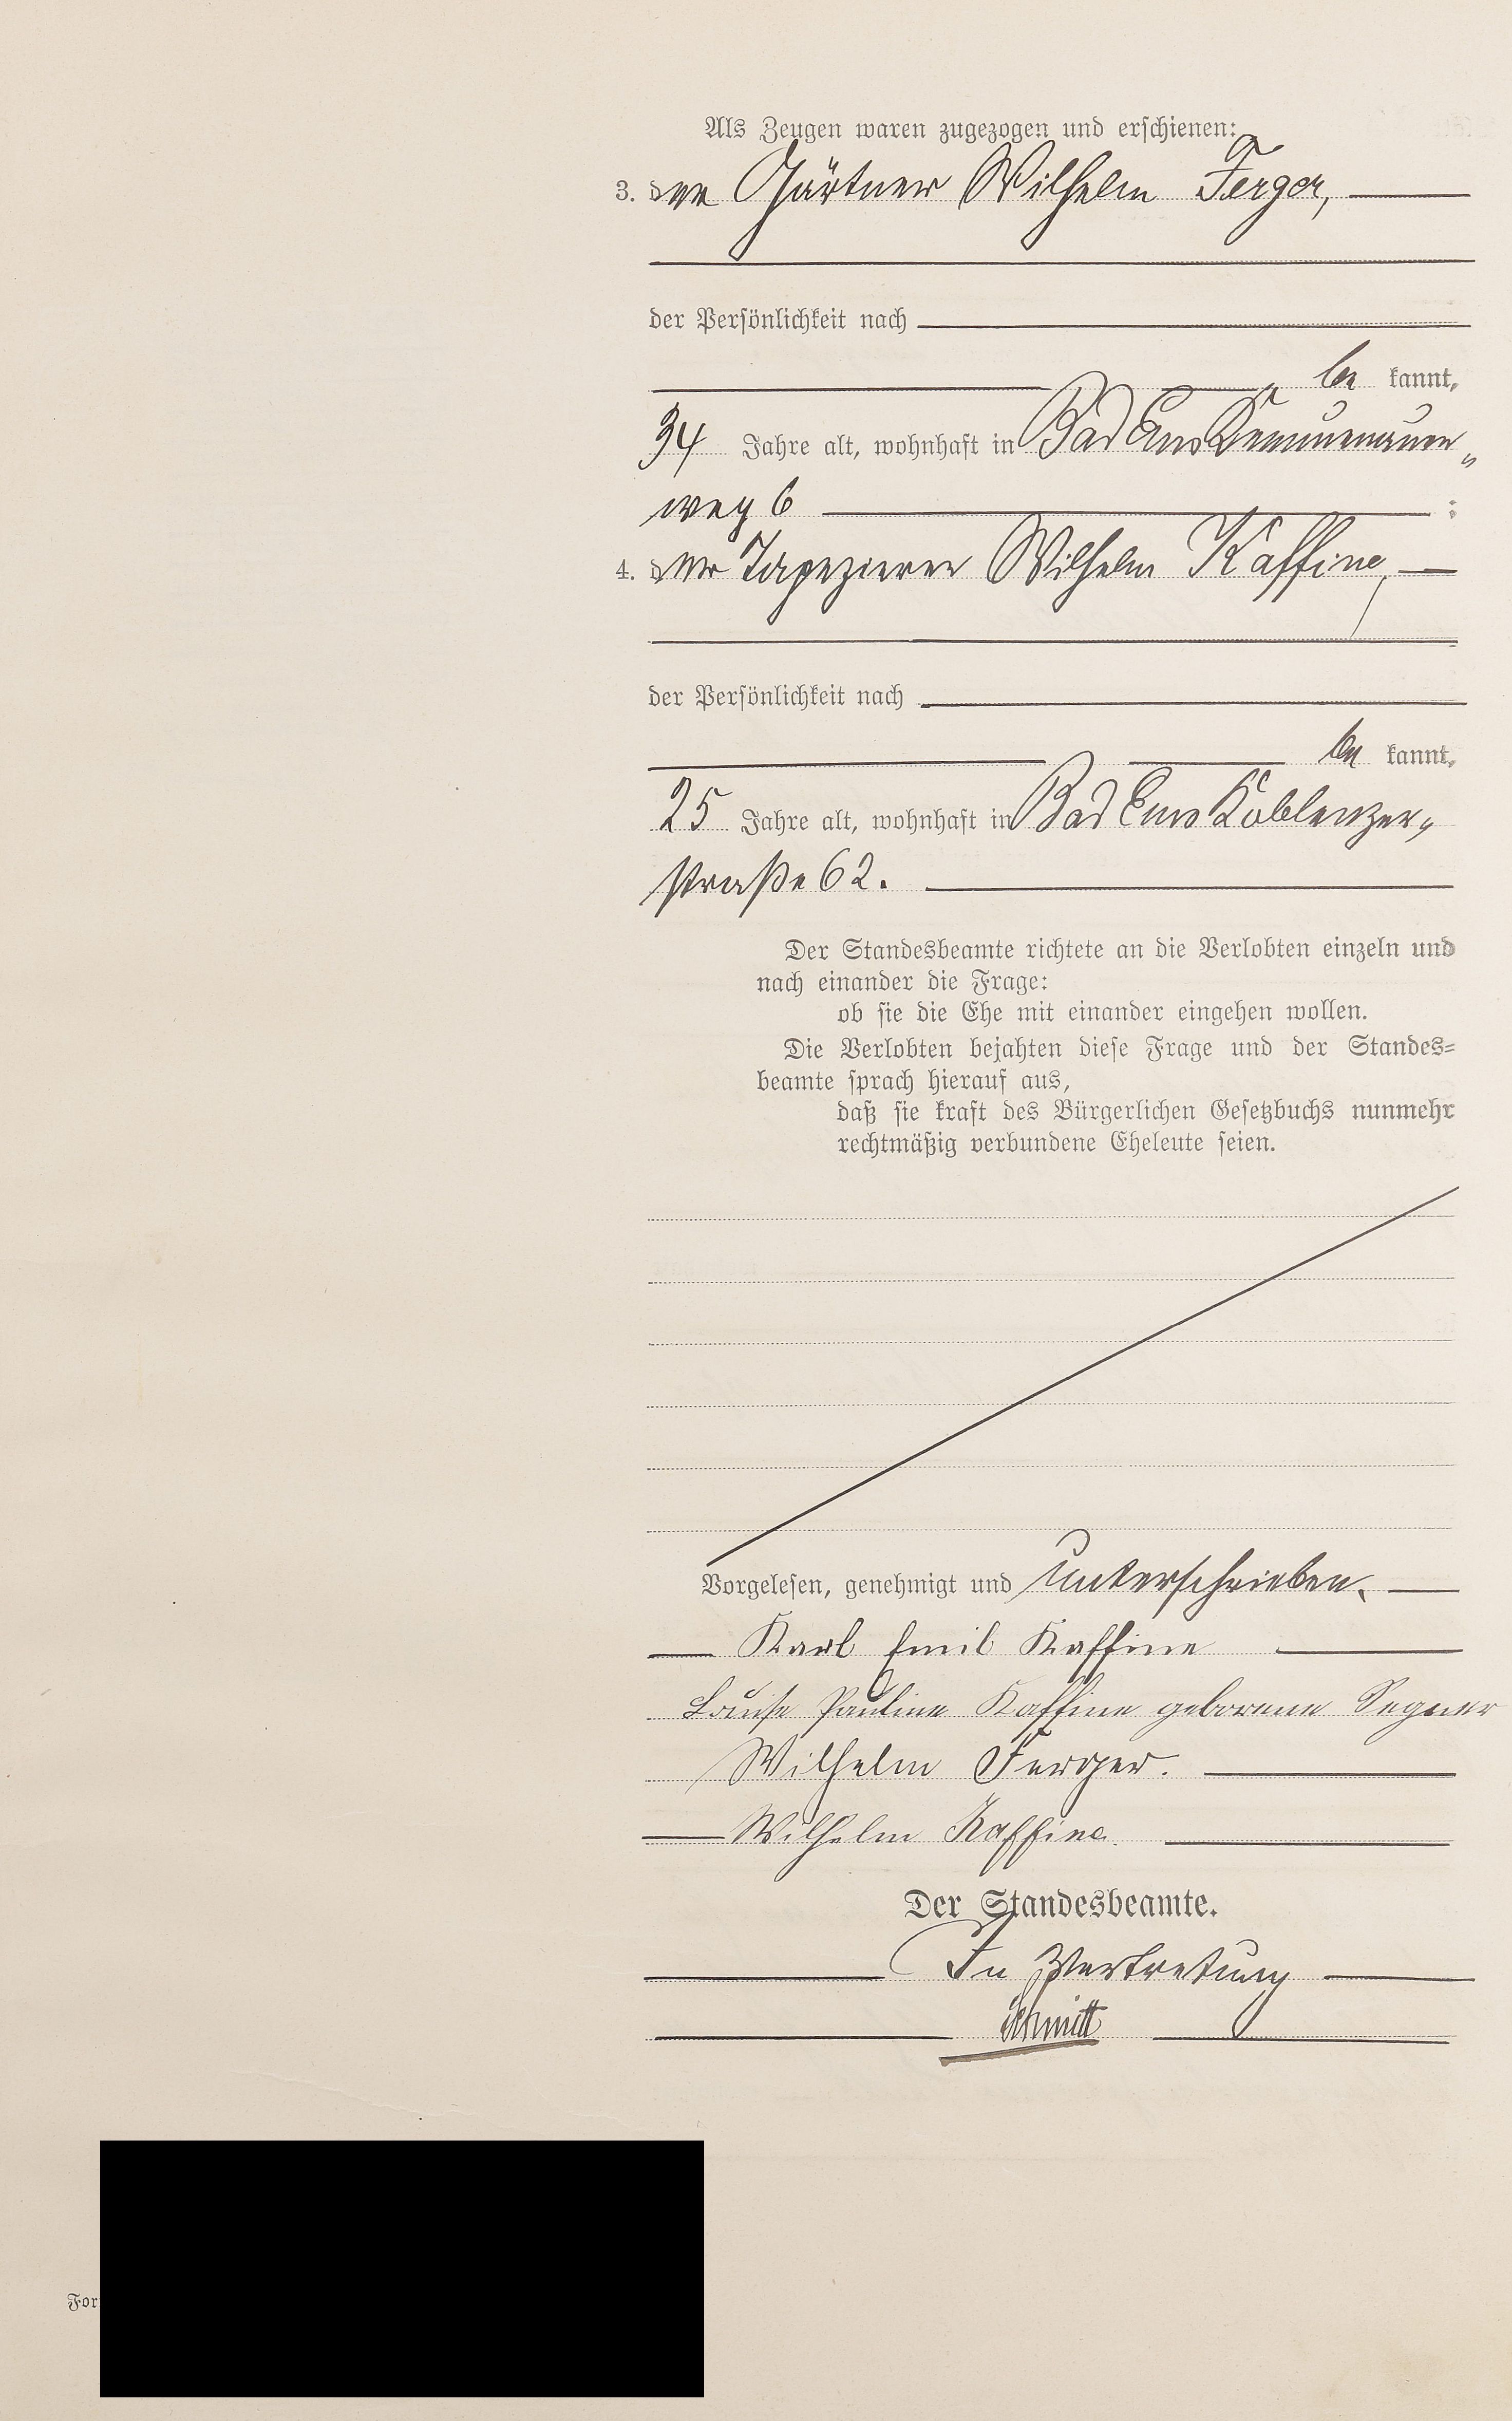 Als Zeugen waren zugezogen und erschienen:
3. der Gärtner Wilhelm Ferger,
der Persönlichkeit nach
be kannt,
34 Jahre alt, wohnhaft in Bad Ems Kemmenauer„
weg 6 ;
4. der Tapezierer Wilhelm Kaffine,
der Persönlichkeit nach
be kannt,
25 Jahre alt, wohnhaft in Bad Ems Koblenzer„
straße 62.
Der Standesbeamte richtete an die Verlobten einzeln und
nach einander die Frage:
ob sie die Ehe mit einander eingehen wollen.
Die Verlobten bejahten diese Frage und der Standes=
beamte sprach hierauf aus,
daß sie kraft des Bürgerlichen Gesetzbuchs nunmehr
rechtmäßig verbundene Eheleute seien.
Vorgelesen, genehmigt und unterschrieben.
Karl Emil Kaffine
Louise Pauline Kaffine geborene Segner
Wilhelm Ferger.
Wilhelm Kaffine.
Der Standesbeamte.
In Vertretung
Schmitt
For